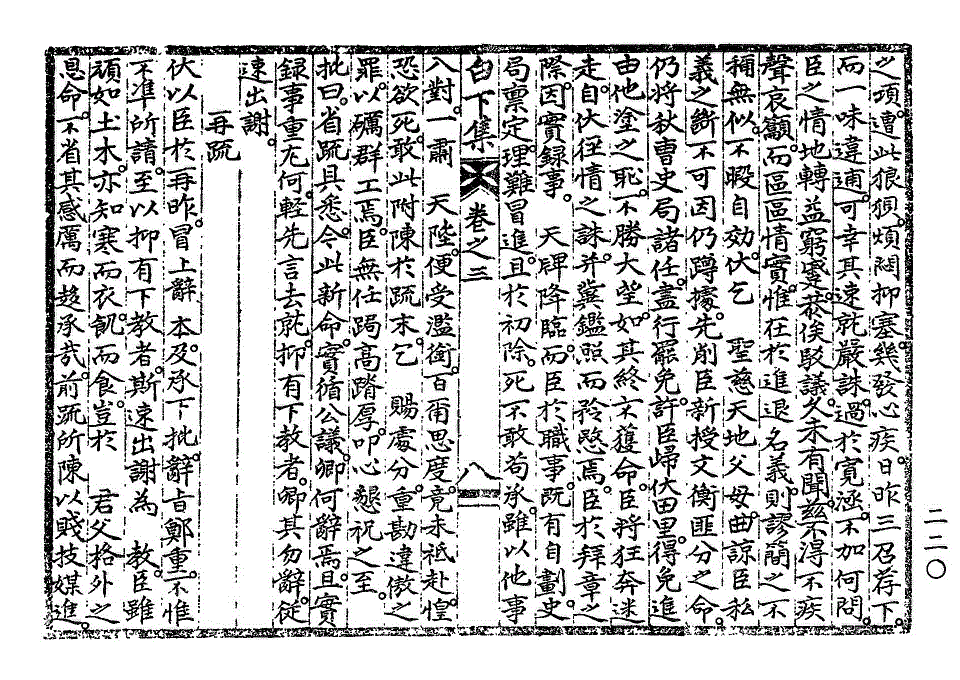 之項遭此狼狽煩悶抑塞幾發心疾日昨三召荐下
而一味違逋可幸其速就嚴誅過於寬涵不加何問
臣之情地轉益窮蹙恭俟駁議久未有聞玆不得不疾
聲哀籲而區區情實惟在於進退名義則謬簡之不
稱無似不暇自効伏乞 聖慈天地父母曲諒臣私
義之斷不可因仍蹲據先削臣新授文衡匪分之命
仍將秋曹史局諸任盡行罷免許臣歸伏田里得免進
由他塗之恥不勝大望如其終不獲命臣將狂奔迷
走自伏徑情之誅幷冀鑑照而矜愍焉臣於拜章之
際因實錄事 天牌降臨而臣於職事旣有自劃史
局稟定理難冒進且於初除死不敢苟承雖以他事
白下集 卷之三 八
入對一肅 天陛便受濫銜百爾思度竟未祗赴惶
恐欲死敢此附陳於疏末乞 賜處分重勘違傲之
罪以礪群工焉臣無任跼高蹐厚叩心懇祝之至
批曰省疏具悉今此新命實循公議卿何辭焉且實
錄事重尤何輕先言去就抑有下敎者卿其勿辭從
速出謝
再疏
伏以臣於再昨冒上辭 本及承下批辭旨鄭重不惟
不準所請至以抑有下敎者斯速出謝爲 敎臣雖
頑如土木亦知寒而衣飢而食豈於 君父格外之
恩命不省其感厲而趍承哉前疏所陳以賤技媒進
二二〇